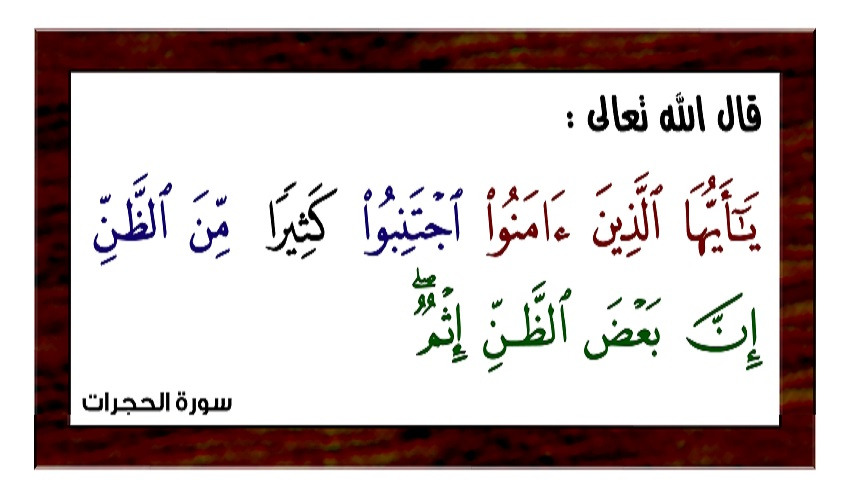 قال الله تعالى :
يَـٰٓأَيُّهَا ٱلَّذِينَ ءَامَنُوا۟ ٱجْتَنِبُوا۟ كَثِيرًا مِّنَ ٱلظَّنِّ
إِنَّ بَعْضَ ٱلظَّنِّ إِثْمٌ ۖ
سورة الحجرات